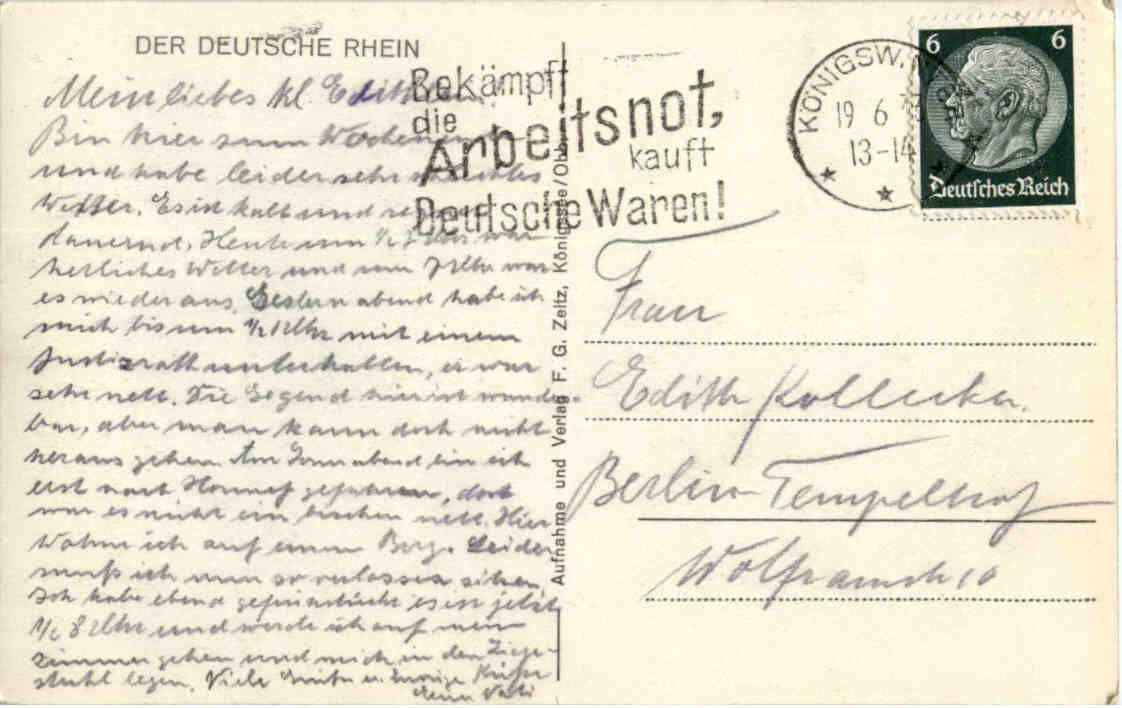 DER DEUTSCHE RHEIN
Mein liebes kl. Edithlein.
Bin hier zum Wochenend
und habe leider sehr schlechtes
Wetter. Es ist kalt und regnet
dauernd. Heute um ½ 7 Uhr war
herliches Wetter und um 7 Uhr war
es wieder aus. Gestern abend habe ich
mich bis um ½ 12 Uhr mit einem
Justizrath unterhalten, er war
sehr nett. Die Gegend hier ist wunder-
bar, aber man kann doch nicht
heraus gehen. Am Sonnabend bin ich
erst nach Honnef gefahren, dort
war es nicht ein bischen nett. Hier
wohne ich auf einem Berg. Leider
muß ich nun so verlassen sitzen.
Ich habe ebend gefrühstückt es ist jetzt
½ 8 Uhr und werde ich auf mein
Zimmer gehen und mich in den Liege-
stuhl legen. Viele Grüße u. innige Küsse
Dein Vati
Bekämpft
die
Arbeitsnot,
kauft
Deutsche Waren!
Aufnahme und Verlag F. G. Zeitz, Königssee/Obb.
KÖNIGSW
19 6
13-14
6 6
Deutsches Reich
Frau
Edith Kollecker.
Berlin-Tempelhof
Wolframstr 10